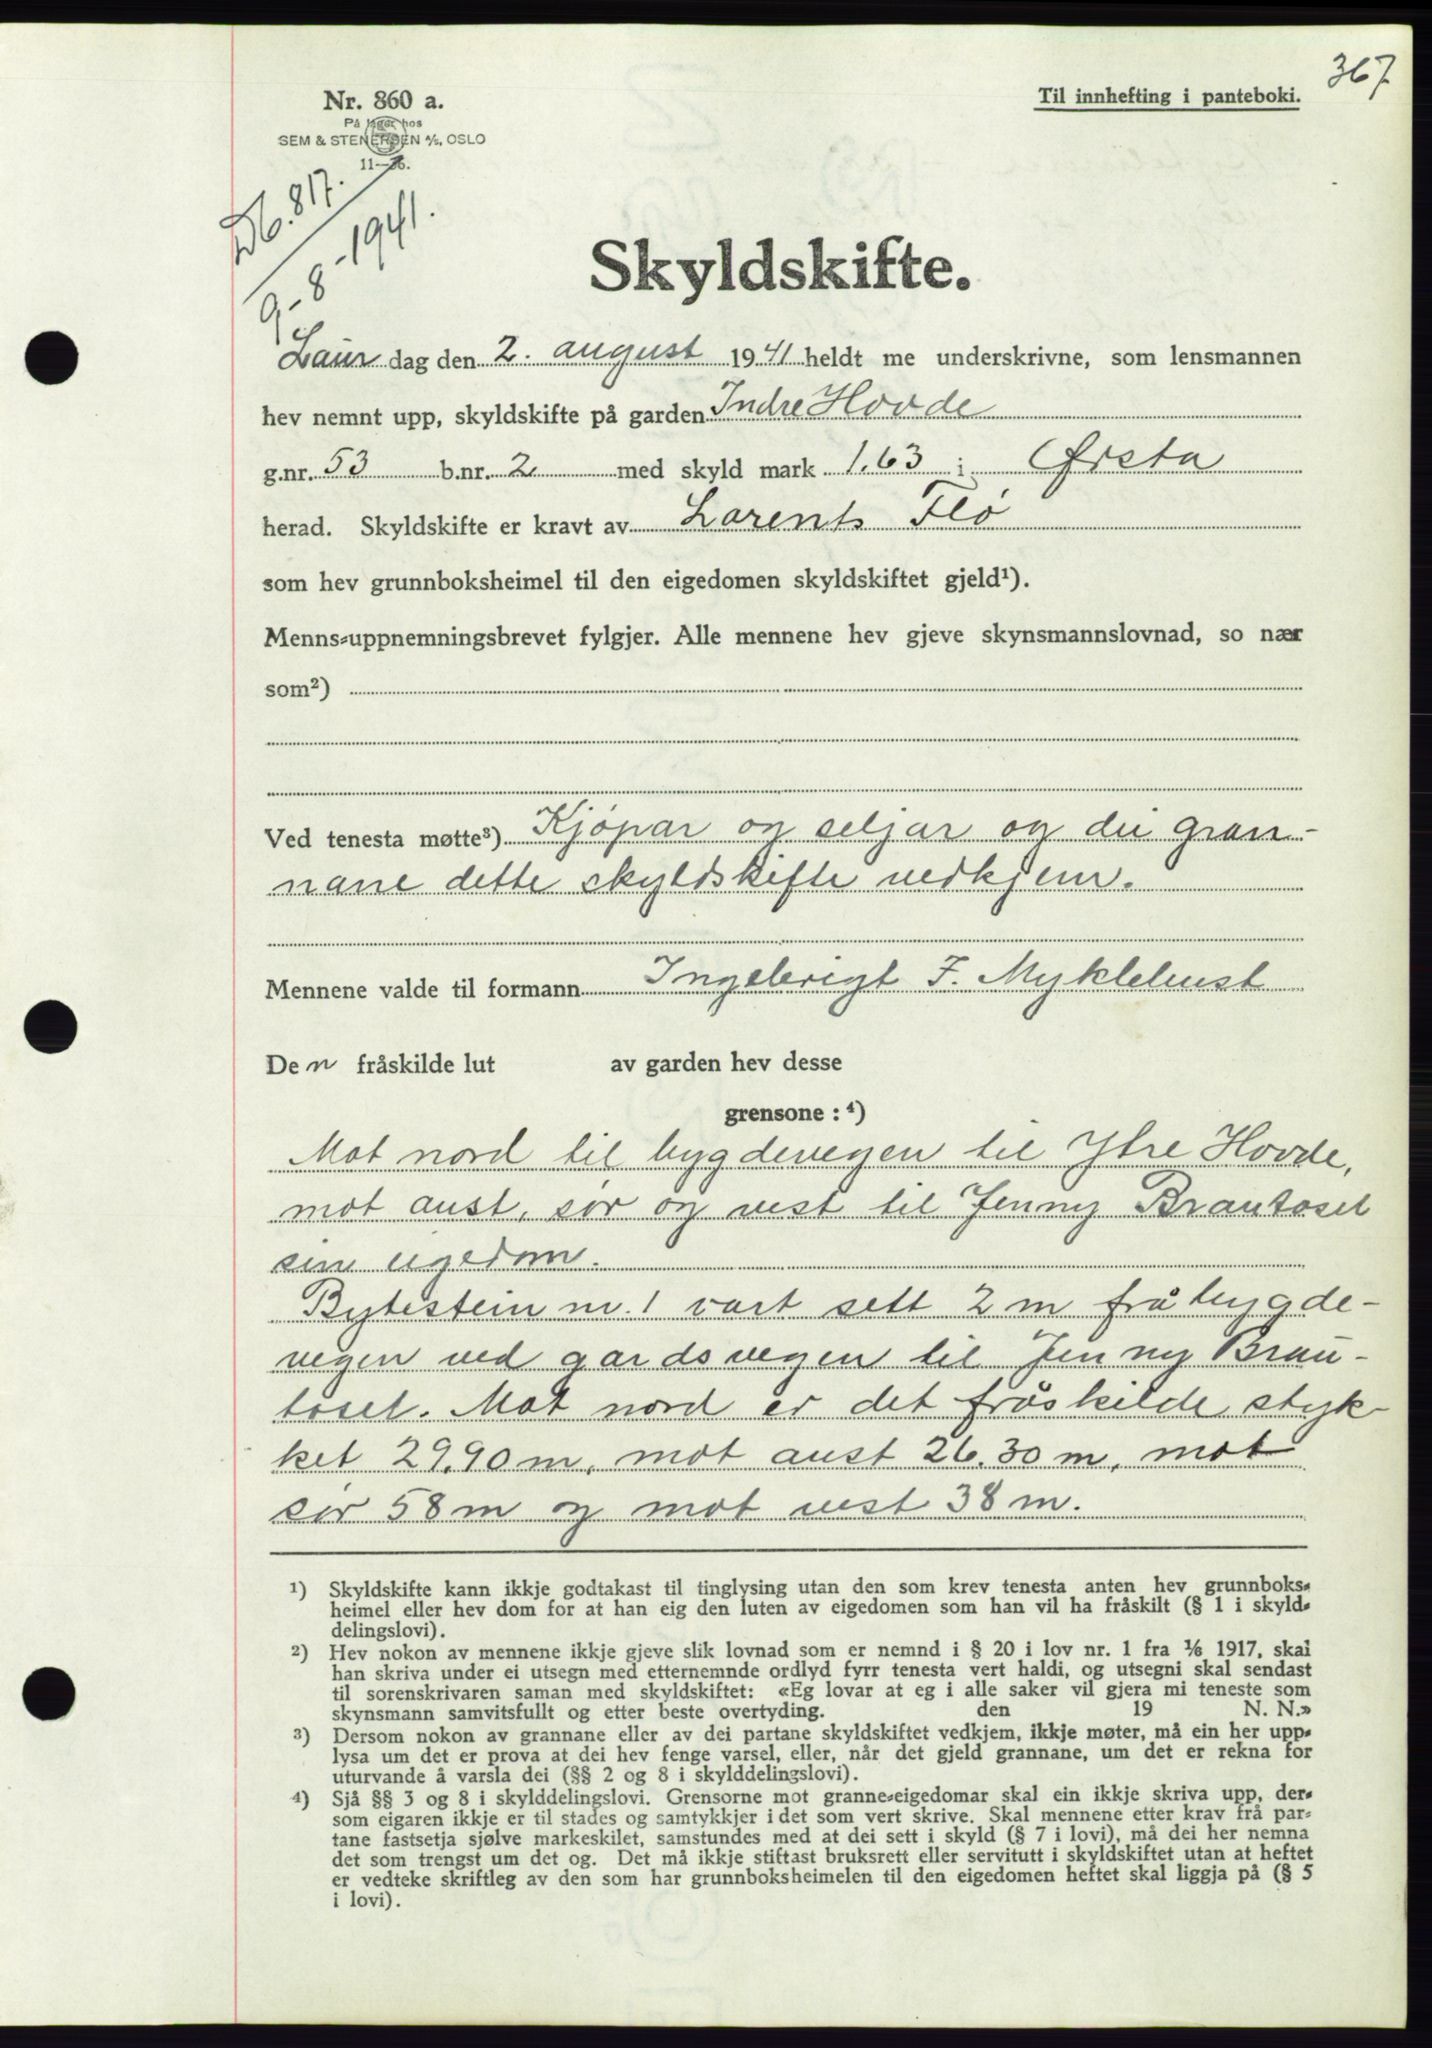 367
Nr. 860 a.
Til innhefting i panteboki.
På lager hos
SEM & STENERSEN A/S, OSLO
11—36.
Db. 817.
9-8-1941.
Skyldskifte.
Laur dag den 2. august 1941 heldt me underskrivne, som lensmannen
hev nemnt upp, skyldskifte på garden Indre Hovde
g.nr. 53 b.nr. 2 med skyld mark 1,63 i Ørsta
herad. Skyldskifte er kravt av Lorents Flø
som hev grunnboksheimel til den eigedomen skyldskiftet gjeld¹).
Menns-uppnemningsbrevet fylgjer. Alle mennene hev gjeve skynsmannslovnad, so nær
som²)
Ved tenesta møtte³) Kjøpar og seljar og dei gran-
nane dette skyldskifte vedkjem.
Mennene valde til formann Ingebrigt F. Myklebust
Den fråskilde lut av garden hev desse
grensone : ⁴)
Mot nord til bygdevegen til Ytre Hovde,
mot aust, sør og vest til Jenny Brautaset
sin eigedom.
Bytestein nr. 1 vart sett 2 m frå bygde-
vegen ved gardsvegen til Jenny Brau-
taset. Mot nord er det fråskilde styk-
ket 29,90 m, mot aust 26.30 m, mot
sør 58 m og mot vest 38 m.
¹) Skyldskifte kann ikkje godtakast til tinglysing utan den som krev tenesta anten hev grunnboks-
heimel eller hev dom for at han eig den luten av eigedomen som han vil ha fråskilt (§ 1 i skyld-
delingslovi).
²) Hev nokon av mennene ikkje gjeve slik lovnad som er nemnd i § 20 i lov nr. 1 fra 1/6 1917, skal
han skriva under ei utsegn med etternemnde ordlyd fyrr tenesta vert haldi, og utsegni skal sendast
til sorenskrivaren saman med skyldskiftet: «Eg lovar at eg i alle saker vil gjera mi teneste som
skynsmann samvitsfullt og etter beste overtyding. den 19 N. N.»
³) Dersom nokon av grannane eller av dei partane skyldskiftet vedkjem, ikkje møter, må ein her upp-
lysa um det er prova at dei hev fenge varsel, eller, når det gjeld grannane, um det er rekna for
uturvande å varsla dei (§§ 2 og 8 i skylddelingslovi).
⁴) Sjå §§ 3 og 8 i skylddelingslovi. Grensorne mot granne-eigedomar skal ein ikkje skriva upp, der-
som eigaren ikkje er til stades og samtykkjer i det som vert skrive. Skal mennene etter krav frå par-
tane fastsetja sjølve markeskilet, samstundes med at dei sett i skyld (§ 7 i lovi), må dei her nemna
det som trengst um det og. Det må ikkje stiftast bruksrett eller servitutt i skyldskiftet utan at heftet
er vedteke skriftleg av den som har grunnboksheimelen til den eigedomen heftet skal liggja på (§ 5
i lovi).